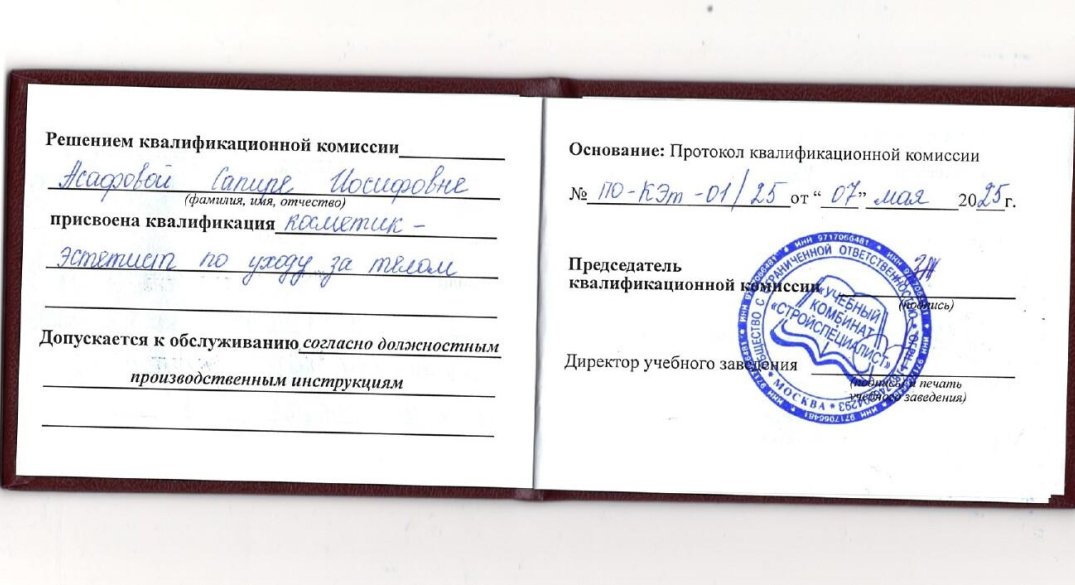 Решением квалификационной комиссии
Асафовой Сапире Иосифовне
(фамилия, имя, отчество)
присвоена квалификация косметик –
эстетист по уходу за телом
Допускается к обслуживанию согласно должностным
производственным инструкциям
Основание: Протокол квалификационной комиссии
№ ПО-КЭт-01/25 от “07” мая 2025г.
Председатель
квалификационной комиссии
(подпись)
Директор учебного заведения
(подпись и печать
учебного заведения)
ИНН 9717066481
ОБЩЕСТВО С ОГРАНИЧЕННОЙ ОТВЕТСТВЕННОСТЬЮ
МОСКВА
«УЧЕБНЫЙ
КОМБИНАТ
«СТРОЙСПЕЦИАЛИСТ»